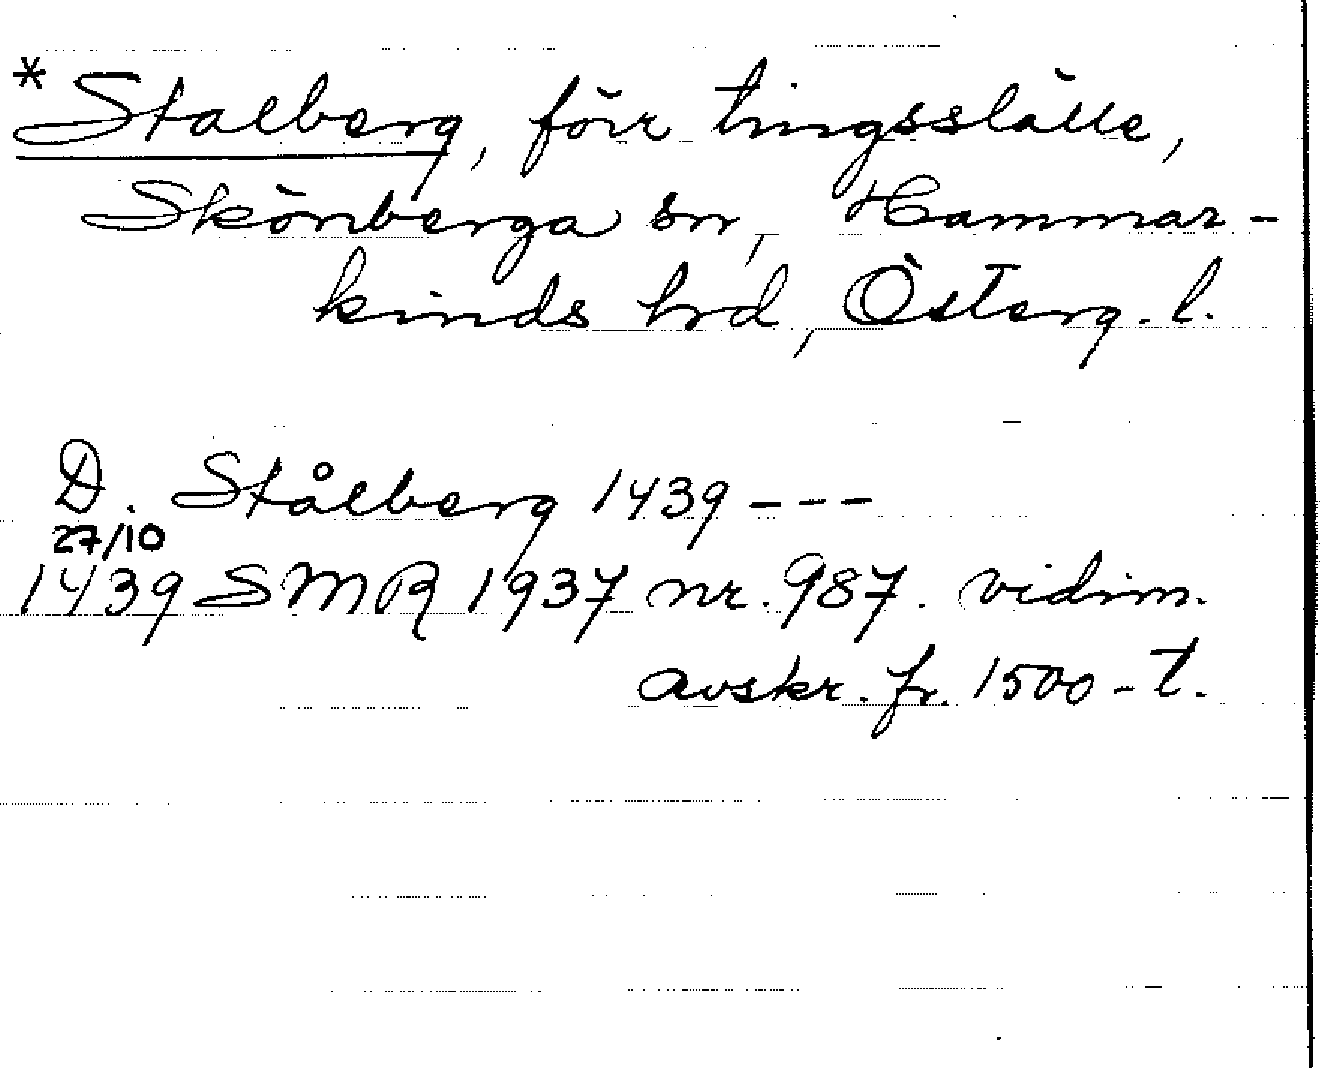 *Stalberg, förr tingsställe,
Skönberga sn, Hammar-
kinds hrd, Österg. l.
D. Stålberg 1439 - - -
27/10
1439 SMR 1937 nr. 987. vidim.
avskr. fr. 1500-t.